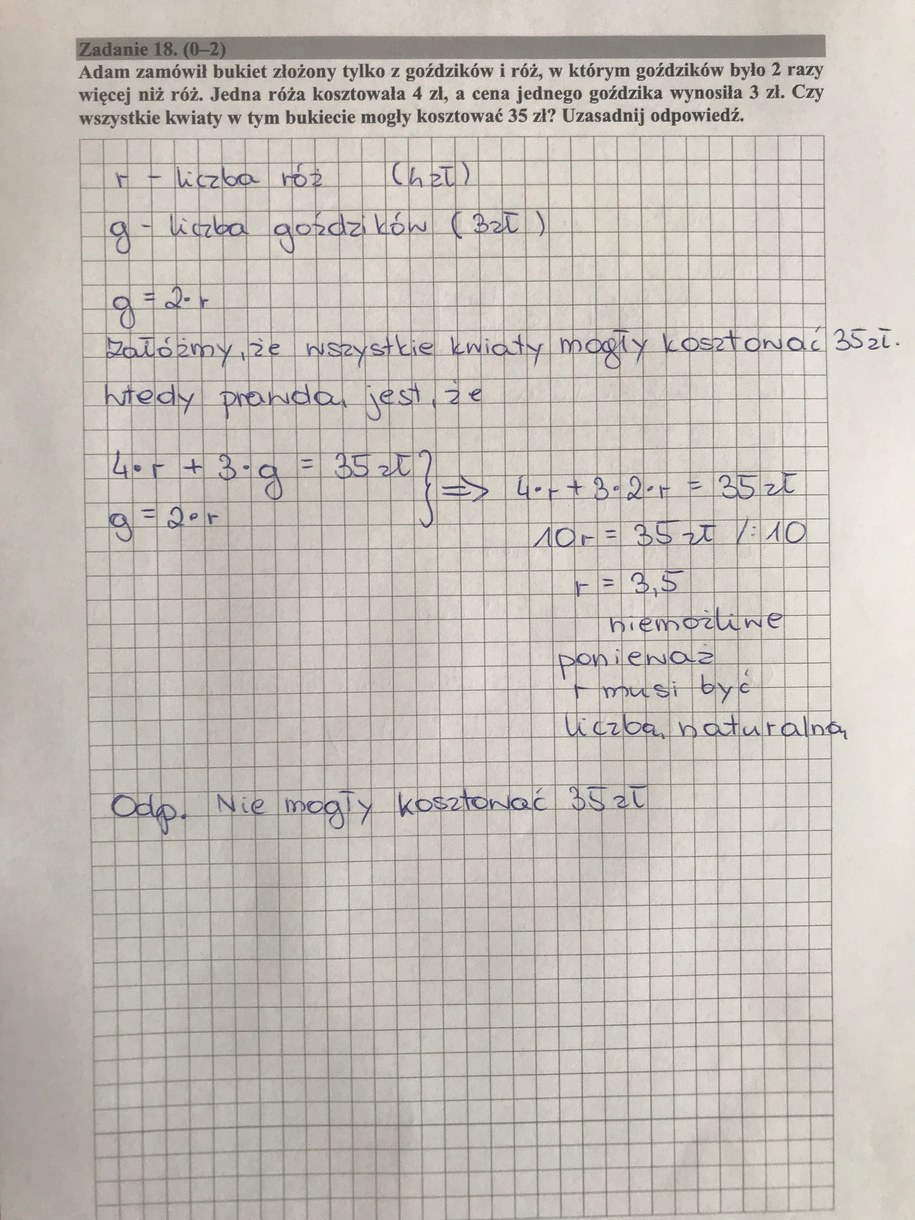 Zadanie 18. (0–2)
Adam zamówił bukiet złożony tylko z goździków i róż, w którym goździków było 2 razy
więcej niż róż. Jedna róża kosztowała 4 zł, a cena jednego goździka wynosiła 3 zł. Czy
wszystkie kwiaty w tym bukiecie mogły kosztować 35 zł? Uzasadnij odpowiedź.
r – liczba róż (4zł)
g – liczba goździków (3zł)
g = 2·r
Załóżmy, że wszystkie kwiaty mogły kosztować 35zł.
Wtedy prawdą jest, że
4·r + 3·g = 35zł } ⇒ 4·r + 3·2·r = 35zł
g = 2·r
10r = 35zł /:10
r = 3,5
niemożliwe
ponieważ
r musi być
liczbą naturalną
Odp. Nie mogły kosztować 35zł